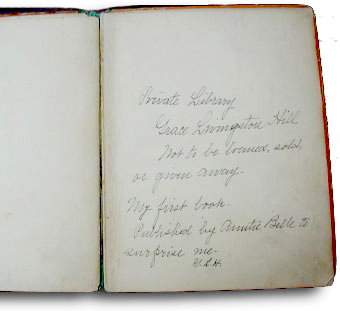 Private Library
Grace Livingston Hill
Not to be loaned, sold,
or given away.
My first book.
Published by Auntie Belle to
surprise me.
G.L.H.